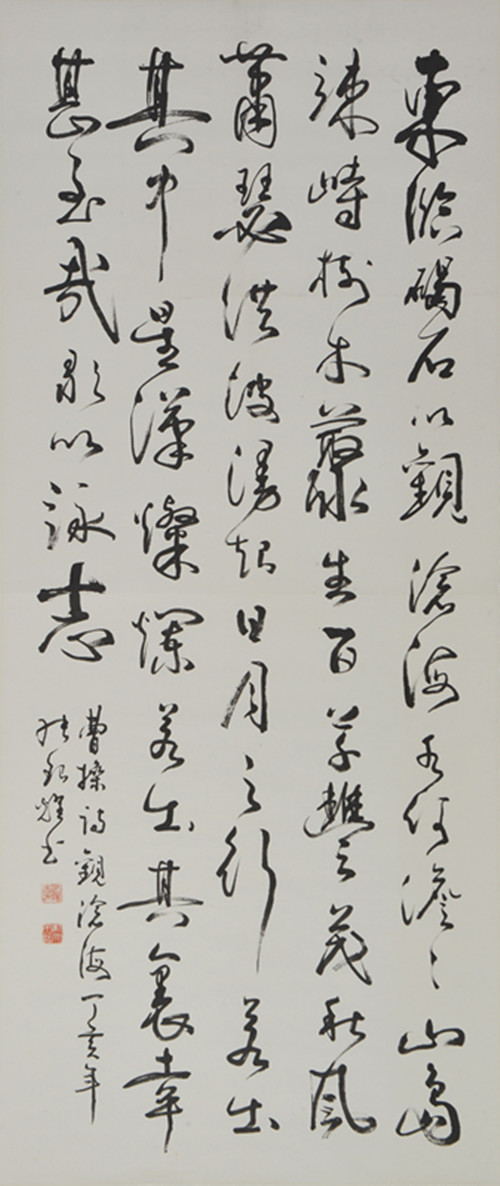 東臨碣石以觀滄海水何澹々山島
竦峙樹木叢生百草豐茂秋風
蕭瑟洪波湧起日月之行若出
其中星漢燦爛若出其裏幸
甚至哉歌以詠志
曹操詩觀滄海丁亥年
書